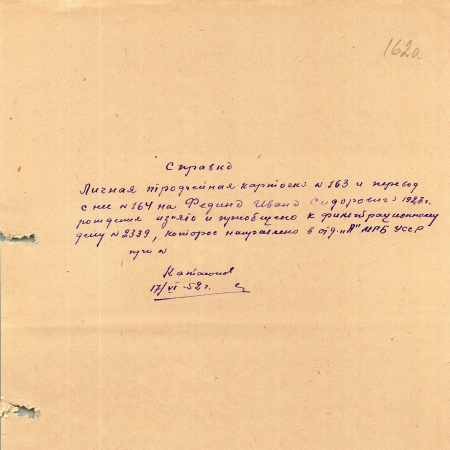 162а
Справка
Личная трофейная карточка N 163 и перевод
с нее N 164 на Федина Ивана Сидоровича 1923 г.
рождения изъято и приобщено к фильтрационному
делу N 2339, которое направлено в отд. "А" МГБ УССР
при N
17/VI-52 г.